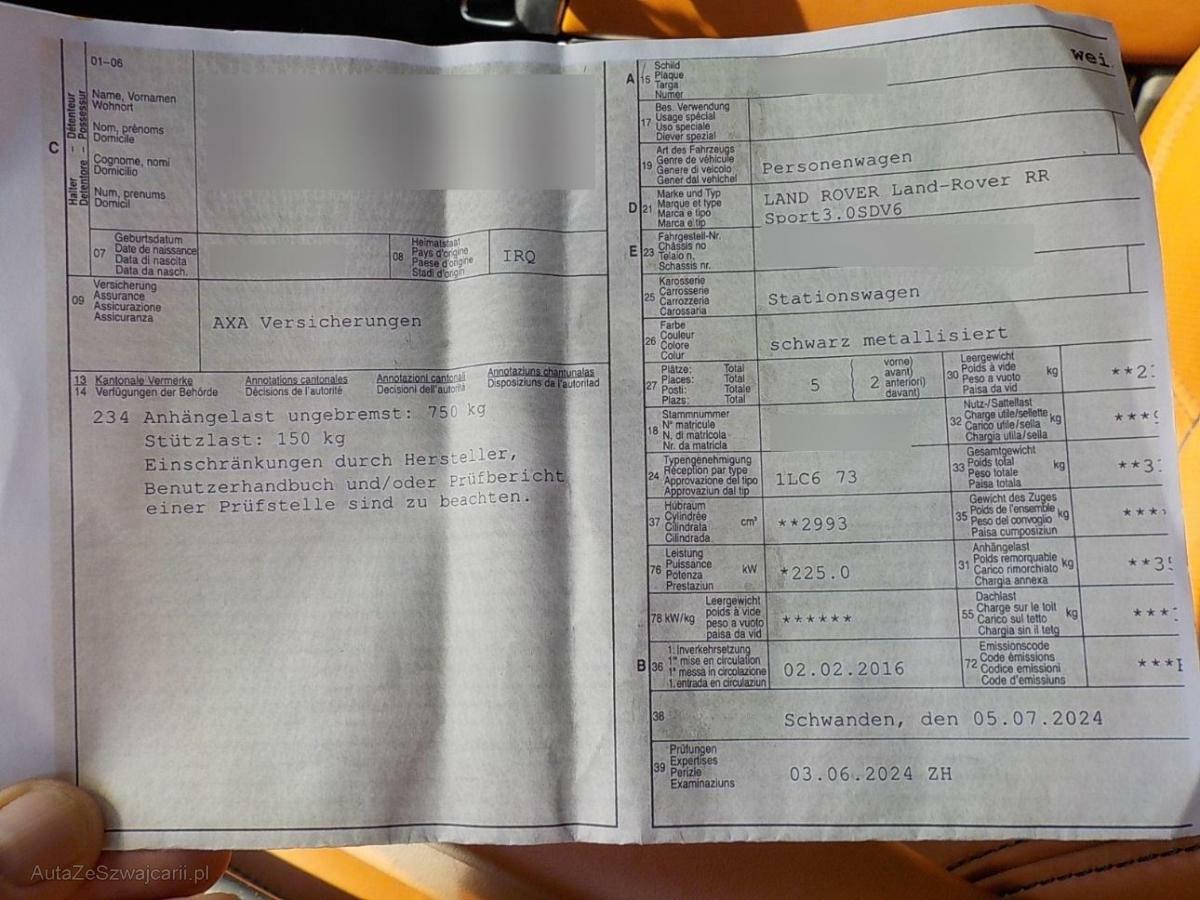 01-06
Halter - Détenteur
Detentore - Possessur
C
Name, Vornamen
Wohnort
Nom, prénoms
Domicile
Cognome, nomi
Domicilio
Num, prenums
Domicil
07
Geburtsdatum
Date de naissance
Data di nascita
Data da nasch.
08
Heimatstaat
Pays d'origine
Paese d'origine
Stadi d'origin
IRQ
09
Versicherung
Assurance
Assicurazione
Assicuranza
AXA Versicherungen
13 Kantonale Vermerke Annotations cantonales Annotazioni cantonali Annotaziuns chantunalas
14 Verfügungen der Behörde Décisions de l'autorité Decisioni dell'autorità Disposiziuns da l'autoritad
234 Anhängelast ungebremst: 750 kg
Stützlast: 150 kg
Einschränkungen durch Hersteller,
Benutzerhandbuch und/oder Prüfbericht
einer Prüfstelle sind zu beachten.
A 15
Schild
Plaque
Targa
Numer
wei
17
Bes. Verwendung
Usage spécial
Uso speciale
Diever spezial
19
Art des Fahrzeugs
Genre de véhicule
Genere di veicolo
Gener dal vehichel
Personenwagen
D 21
Marke und Typ
Marque et type
Marca e tipo
Marca e tip
LAND ROVER Land-Rover RR
Sport3.0SDV6
E 23
Fahrgestell-Nr.
Châssis no
Telaio n.
Schassis nr.
25
Karosserie
Carrosserie
Carrozzeria
Carossaria
Stationswagen
26
Farbe
Couleur
Colore
Colur
schwarz metallisiert
27
Plätze: Total
Places: Total
Posti: Totale
Plazs: Total
5
2
vorne)
avant)
anteriori)
davant)
30
Leergewicht
Poids à vide
Peso a vuoto
Paisa da vid
kg
**2
18
Stammnummer
N° matricule
N. di matricola
Nr. da matricla
32
Nutz-/Sattellast
Charge utile/sellette
Carico utile/sella
Chargia utila/sella
kg
***
24
Typengenehmigung
Réception par type
Approvazione del tipo
Approvaziun dal tip
1LC6 73
33
Gesamtgewicht
Poids total
Peso totale
Paisa totala
kg
**3
37
Hubraum
Cylindrée
Cilindrata
Cilindrada
cm³
**2993
35
Gewicht des Zuges
Poids de l'ensemble
Peso del convoglio
Paisa cumposiziun
kg
***
76
Leistung
Puissance
Potenza
Prestaziun
kW
*225.0
31
Anhängelast
Poids remorquable
Carico rimorchiato
Chargia annexa
kg
**35
78 kW/kg
Leergewicht
poids à vide
peso a vuoto
paisa da vid
******
55
Dachlast
Charge sur le toit
Carico sul tetto
Chargia sin il tetg
kg
***
B 36
1. Inverkehrsetzung
1re mise en circulation
1a messa in circolazione
1. entrada en circulaziun
02.02.2016
72
Emissionscode
Code émissions
Codice emissioni
Code d'emissiuns
***
38
Schwanden, den 05.07.2024
39
Prüfungen
Expertises
Perizie
Examinaziuns
03.06.2024 ZH
AutaZeSzwajcarii.pl